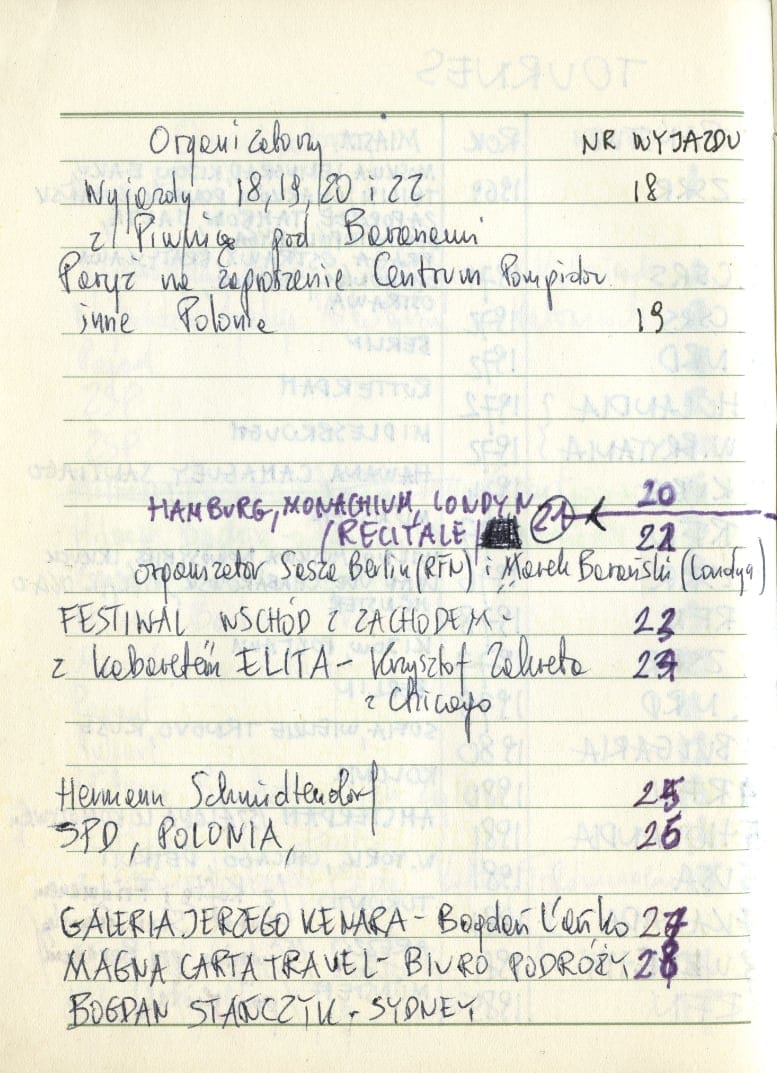 Organizatorzy NR WYJAZDU
Wyjazdy 18, 19, 20 i 22 18
z Piwnicą pod Baranami
Paryż na zaproszenie Centrum Pompidou
inne Polonie 19
20
HAMBURG, MONACHIUM, LONDYN 21
/RECITALE/ 22
organizator Sasza Berlin (RFN) i Marek Barański (Londyn)
FESTIWAL WSCHÓD Z ZACHODEM - 23
z kabaretem ELITA - Krzysztof Zakreta 24
z Chicago
Hermann Schmidtendorf 25
SPD, POLONIA, 26
GALERIA JERZEGO KENARA - Bogdan 27
MAGNA CARTA TRAVEL - BIURO PODRÓŻY 28
BOGDAN STAŃCZYK - SYDNEY